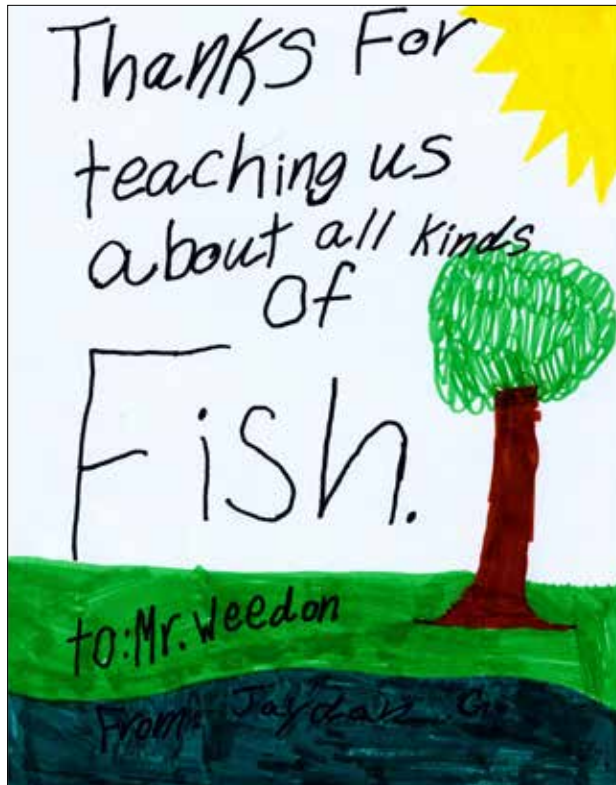 Thanks For
teaching us
about all kinds
Of
Fish.
to: Mr. Weedon
From: Jaydan G.